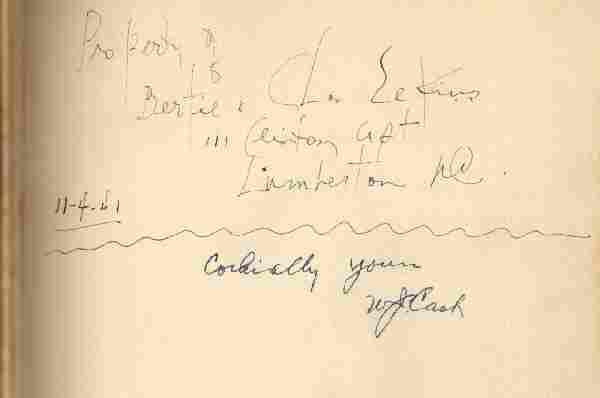 Property of
Bertie & Chas Eekins
111 Clinton Apt
Lumberton NC.
11-4-41
Cordially yours
WJCash